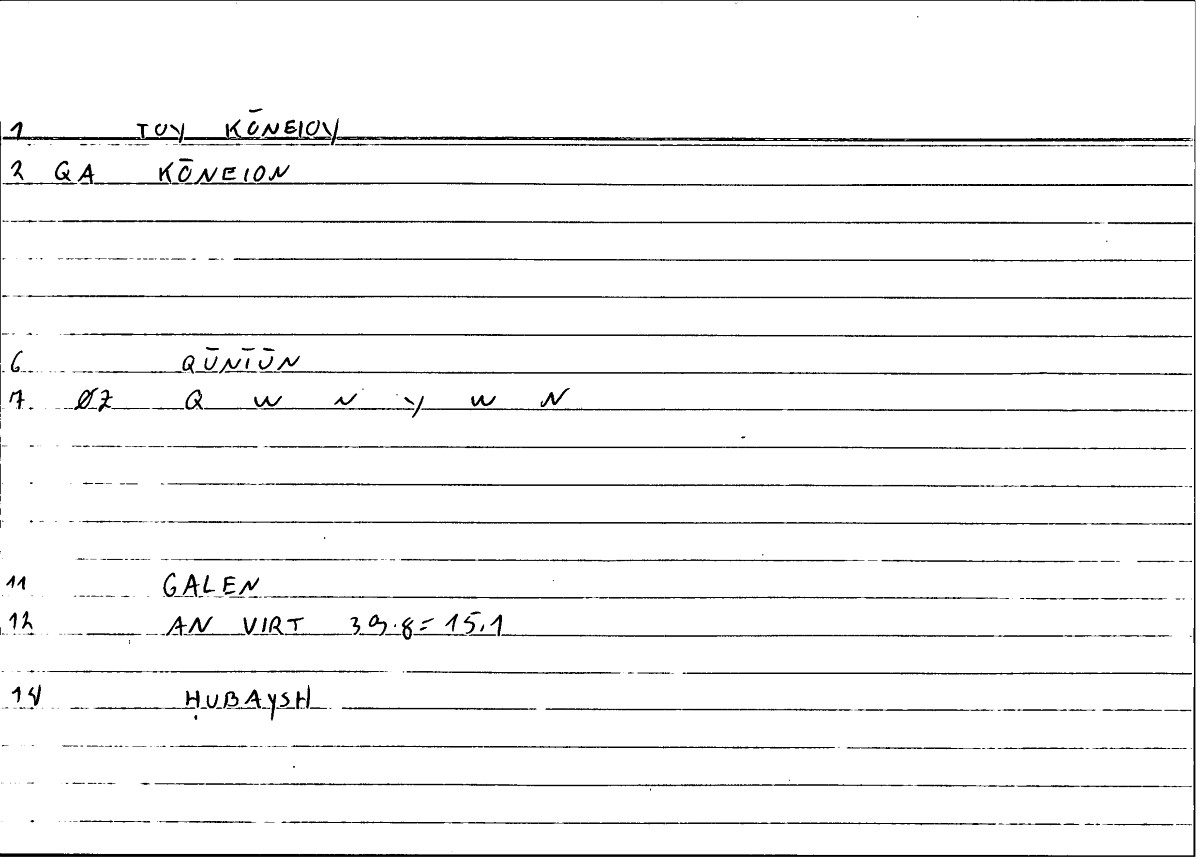 1 TOY KŌNEIOY
2 QA KŌNEION
6 QŪNĪŪN
7. ØZ Q W N Y W N
11 GALEN
12 AN VIRT 39.8=15.1
14 ḤUBAYSH